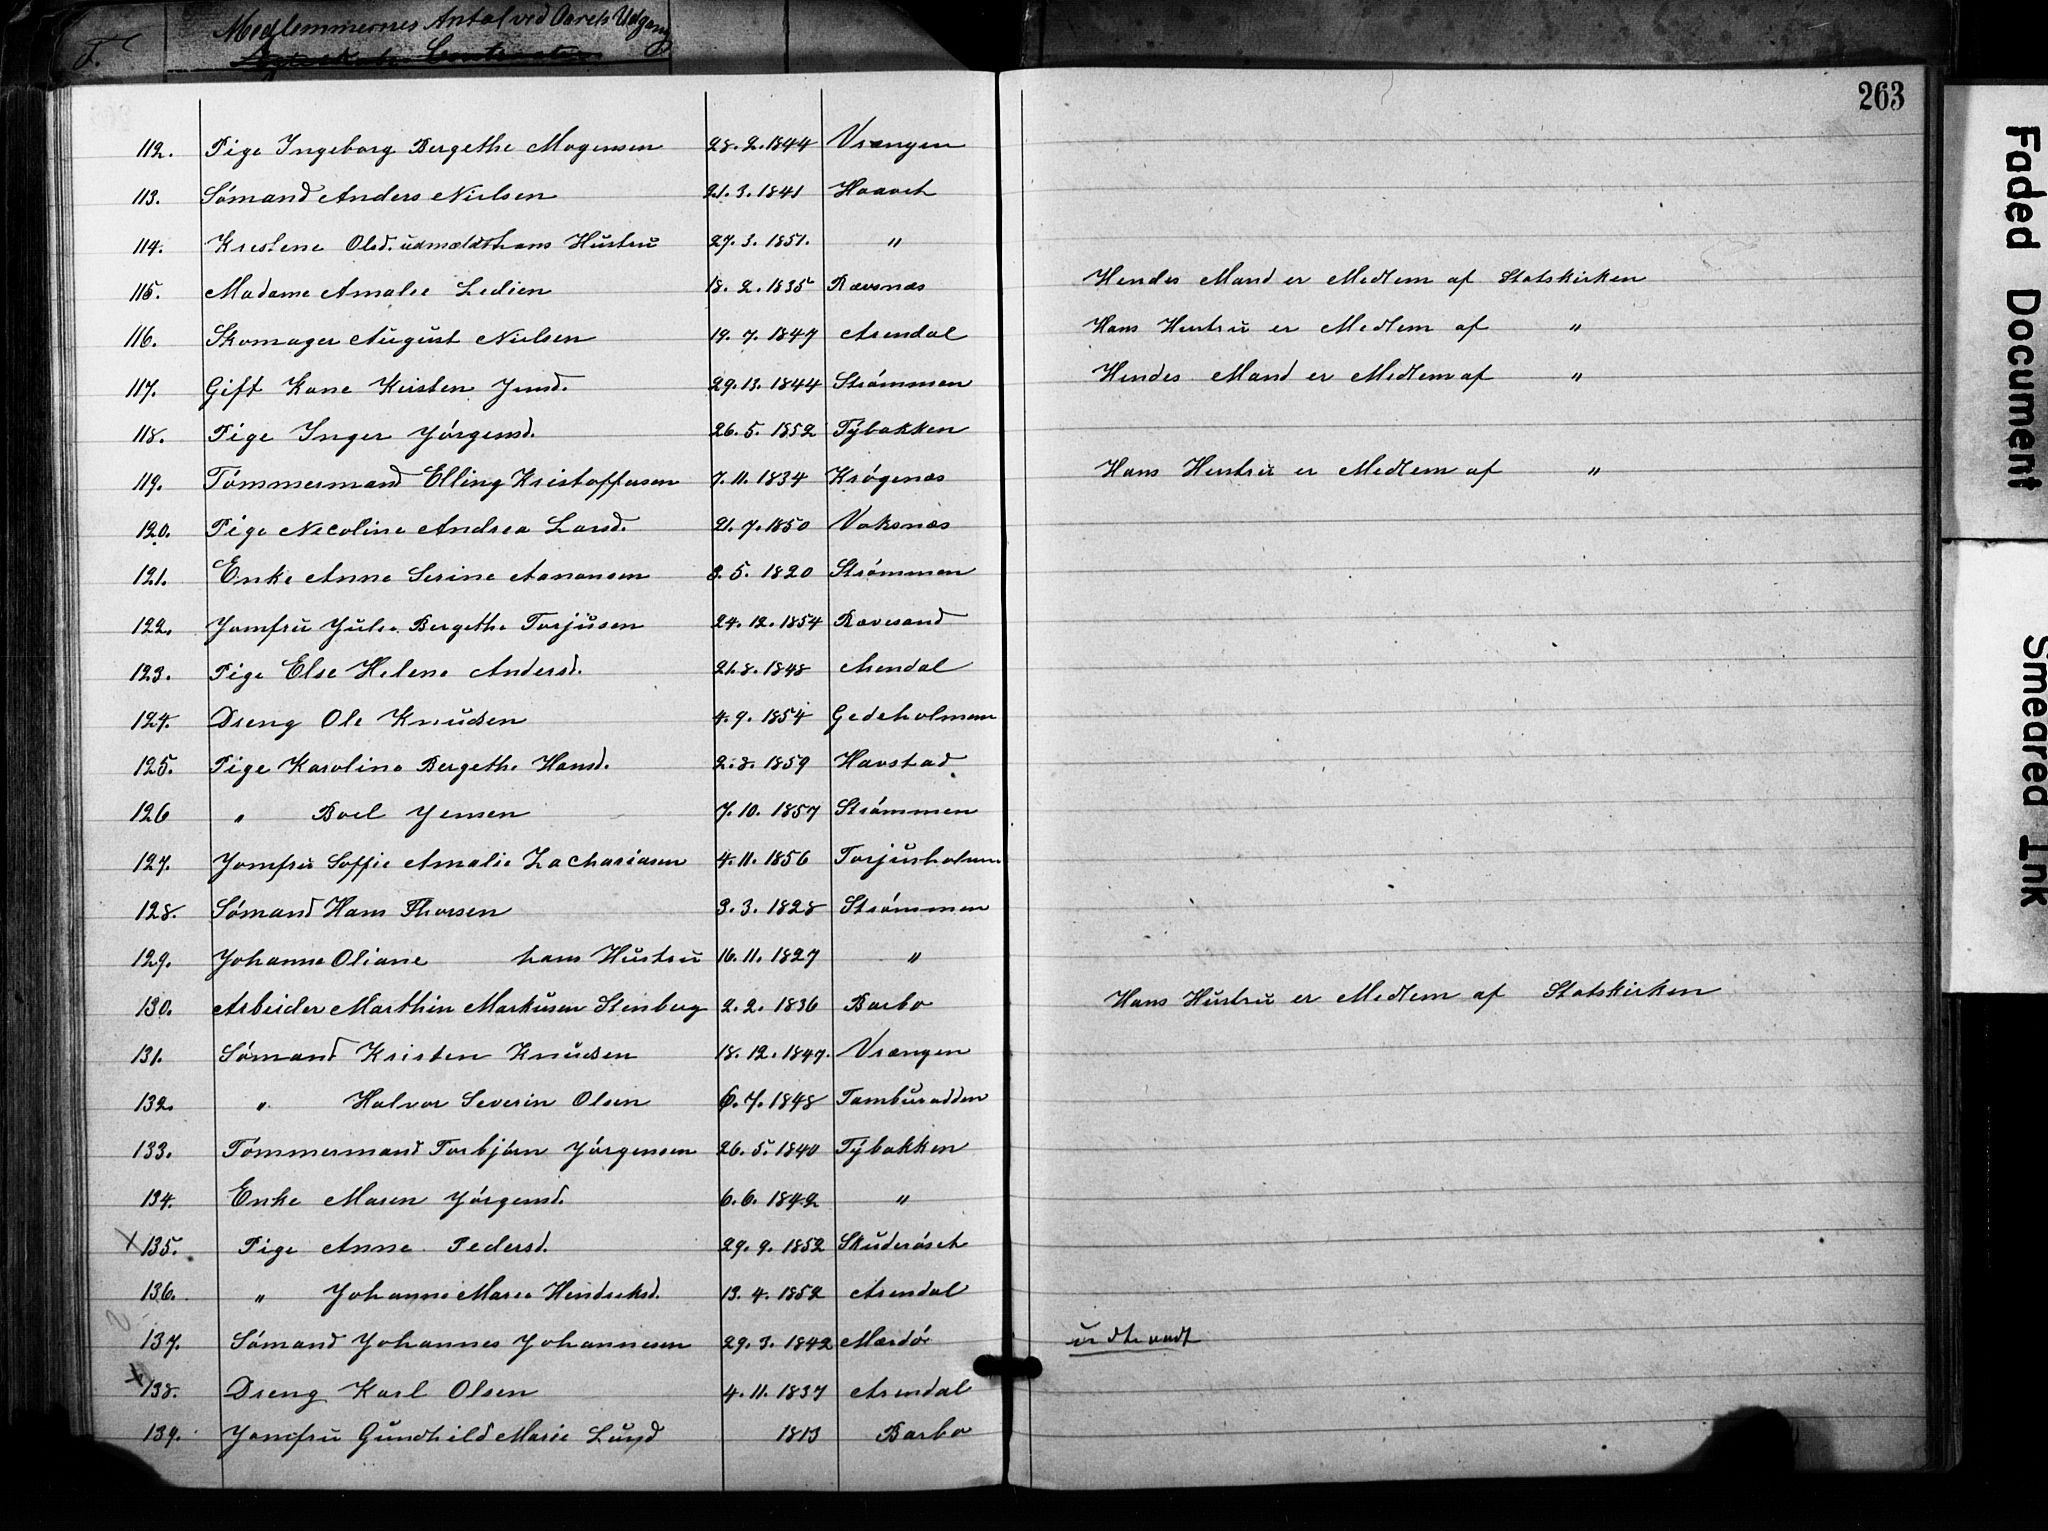 T.
Medlemmernes Antal ved Aarets Udgang
263
112. Pige Ingeborg Bergethe Mogensen 28. 2. 1844 Vrængen
113. Sømand Anders Nielsen 21. 3. 1841
114. Kristene Olsd. udmældt hans Hustru 27. 3. 1851. "
115. Madame Amalie Ledien 18. 2. 1835 Rævnæs Hendes Mand er Medlem af Statskirken
116. Skomager August Nielsen 19. 7. 1847 Arendal Hans Hustru er Medlem af "
117. Gift Kone Kirsten Jensd. 29. 13. 1844 Strømmen Hendes Mand er Medlem af "
118. Pige Inger Jørgensd. 26. 5. 1852 Tybakken
119. Tømmermand Elling Kristoffersen 7. 11. 1834 Krøgenæs Hans Hustru er Medlem af "
120. Pige Nicoline Andrea Larsd. 21. 7. 1850 Vaksnæs
121. Enke Anne Serine Aanonsen 3. 5. 1820 Strømmen
122. Jomfru Julie Bergethe Torjusen 24. 12. 1854 Rævesand
123. Pige Else Helene Andersd. 21. 8. 1848 Arendal
124. Dreng Ole Knudsen 4. 9. 1854 Gedeholmen
125. Pige Karoline Bergethe Hansd. 2. 8. 1859 Havstad
126 " Boel Jensen 7. 10. 1857 Strømmen
127. Jomfru Soffie Amalie Zachariasen 4. 11. 1856 Torjusholmen
128. Sømand Hans Thorsen 3. 3. 1828 Strømmen
129. Johanne Oliane hans Hustru 16. 11. 1827 "
130. Arbeider Marthin Markusen Stenberg 2. 2. 1836 Barbo Hans Hustru er Medlem af Statskirken
131. Sømand Kristen Knudsen 18. 12. 1847. Vrængen
132. " Halvor Severin Olsen 6. 7. 1848 Tamburodden
133. Tømmermand Torbjørn Jørgensen 26. 5. 1840 Tybakken
134. Enke Maren Jørgensd. 6. 6. 1842 "
x 135. Pige Anne Pedersd. 29. 9. 1852
136. " Johanne Marie Hendriksd. 13. 4. 1852 Arendal
137. Sømand Johannes Johannesen 29. 3. 1842 Mærdø udtraadt
x 138. Dreng Karl Olsen 4. 11. 1837 Arendal
139. Jomfru Gundhild Marie Lund 1813 Barbo
Faded Document
Smeared Ink